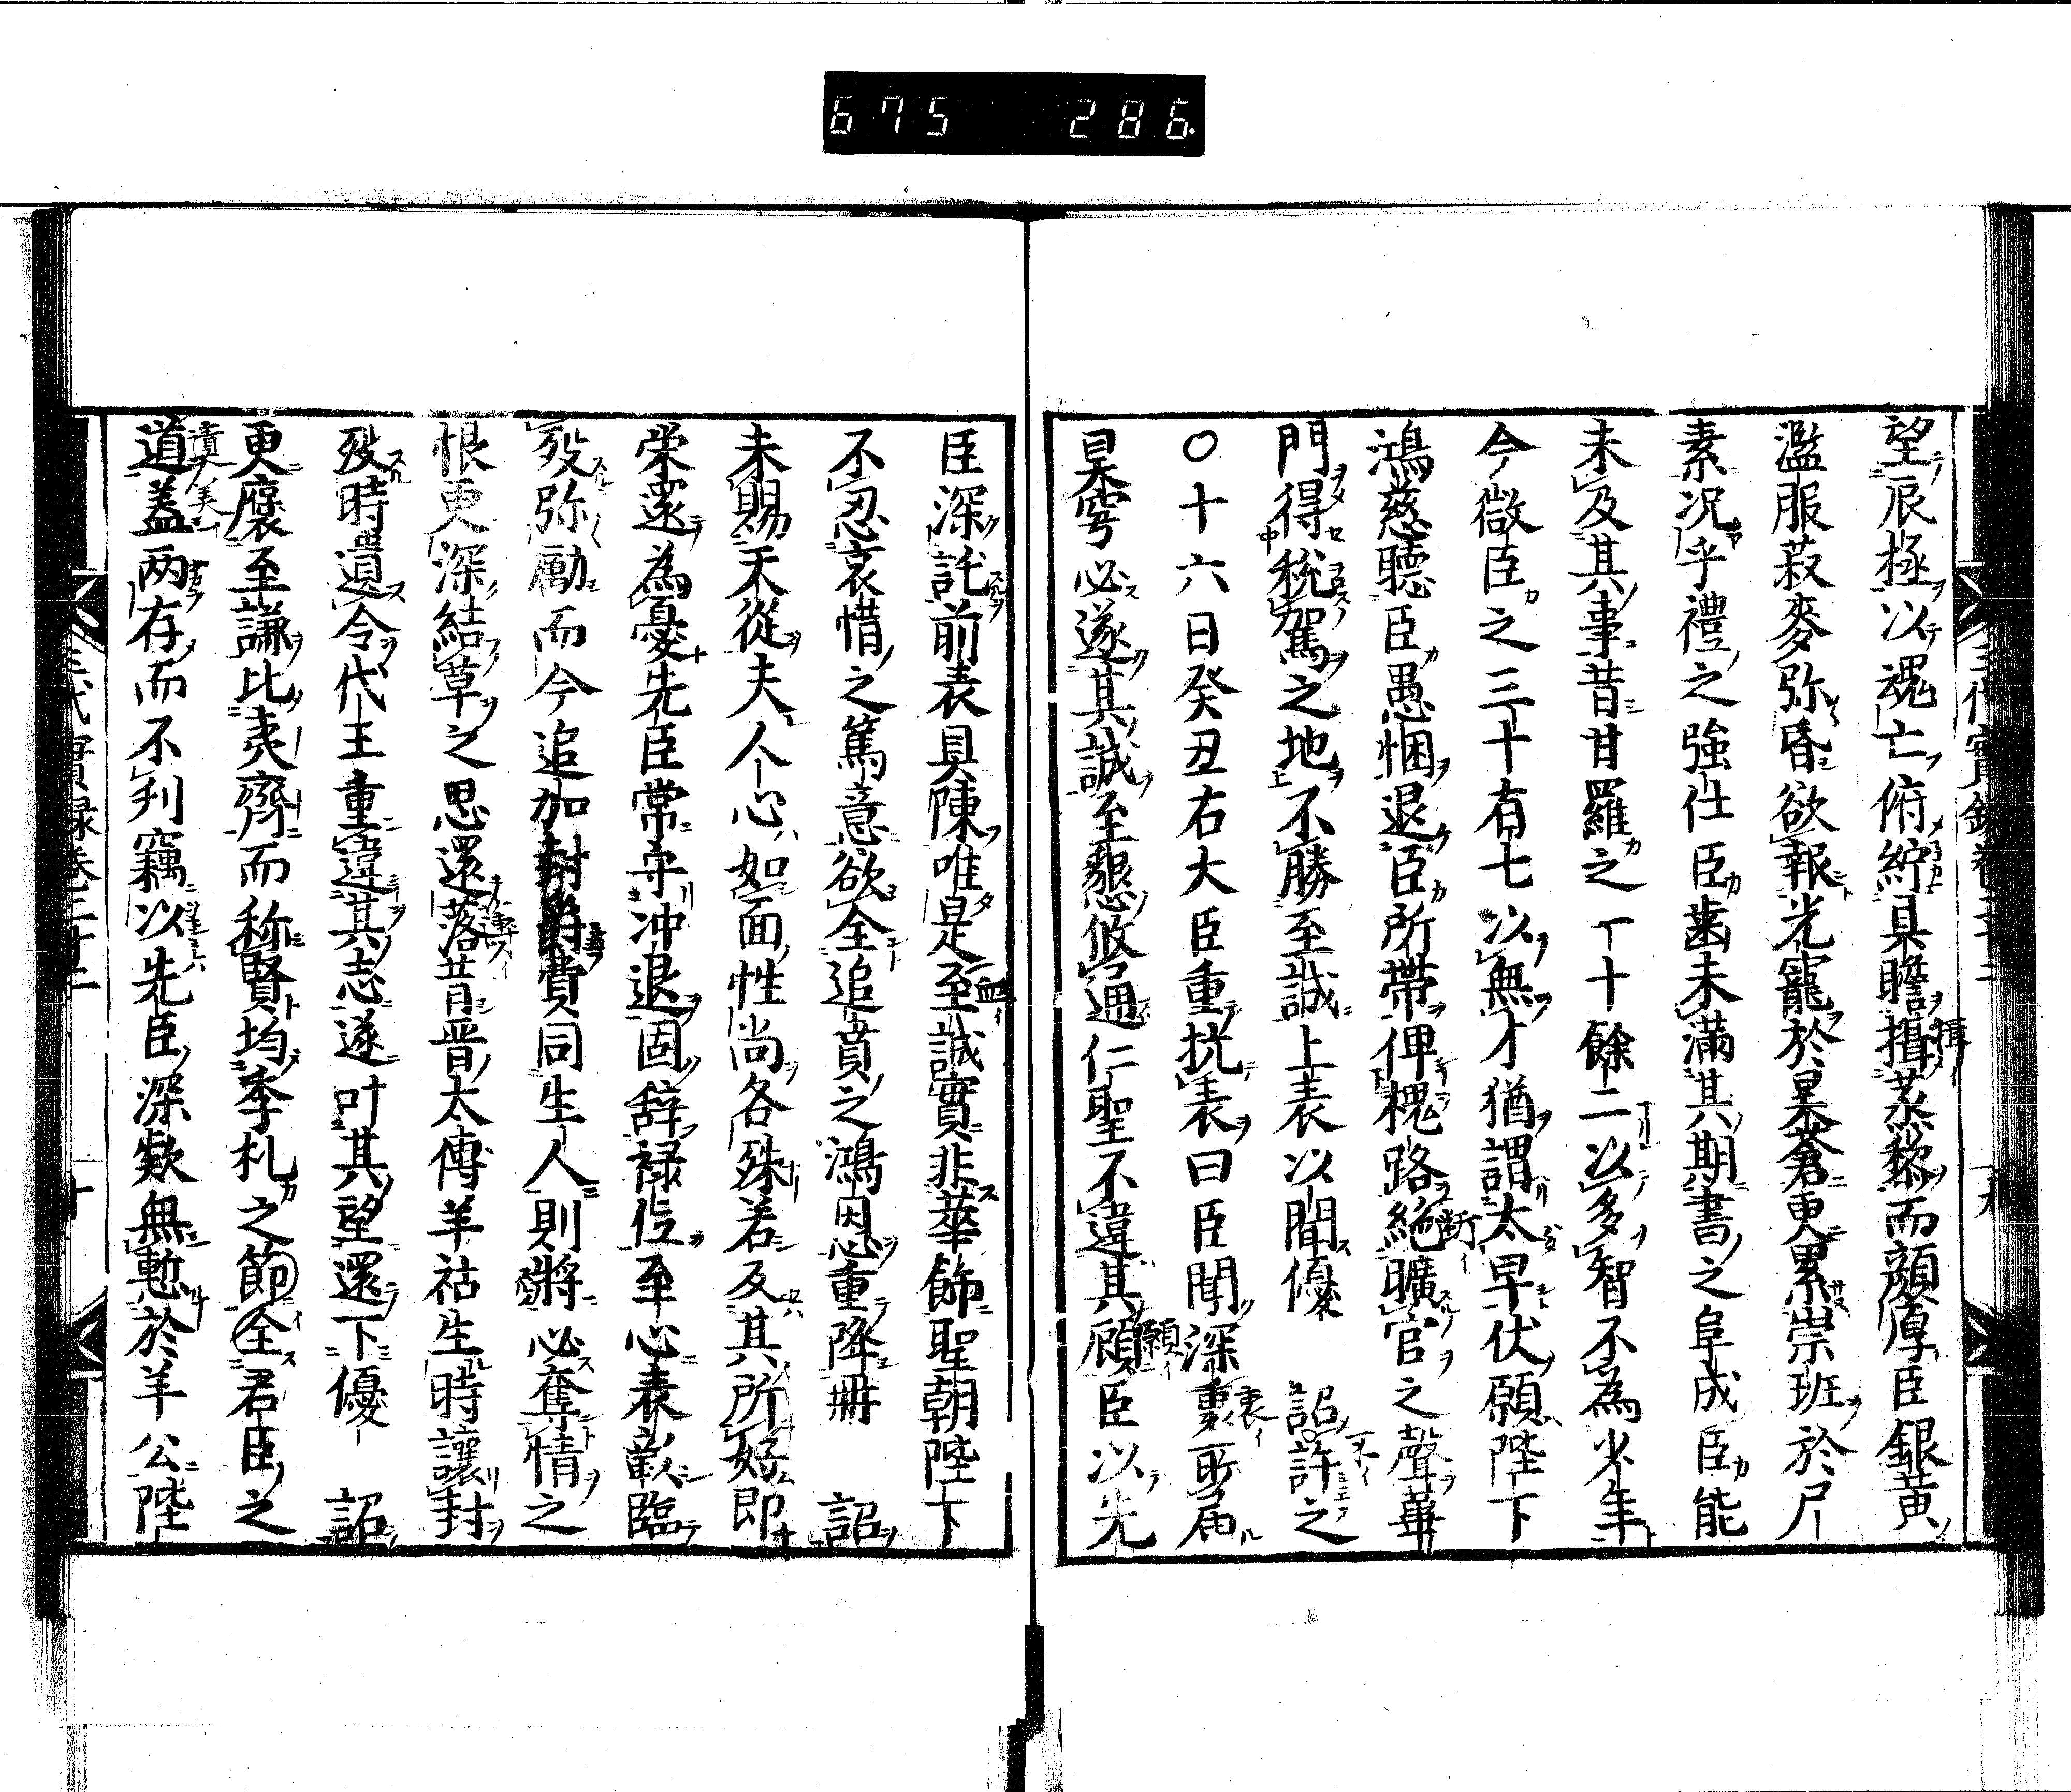 675 286.
望辰極以魂亡俯綜具瞻揖蒸黎而顔厚臣銀黄
濫服菽麥弥昏欲報光寵於昊蒼更累崇班於尸
素況乎禮之強仕臣歯未滿其期書之阜成臣能
未及其事昔甘羅之丁十餘二以多智不為少年
今微臣之三十有七以無才猶謂太早伏願陛下
鴻慈聽臣愚悃退臣所帶俾槐路絶曠官之聲蓽
門得税駕之地不勝至誠上表以聞優 詔許之
○十六日癸丑右大臣重抗表曰臣聞深衷所届
昊穹必遂其誠至懇攸通仁聖不違其願臣以先
臣深託前表具陳唯是至誠實非華飾聖朝陛下
不忍哀惜之篤意欲全追賁之鴻恩重降冊 詔
未賜天從夫人心如面性尚各殊若及其所好即
栄還為憂先臣常守冲退固辞禄位至心表歡臨
歿弥勵而今追加封爵費同生人則將必奪情之
恨更深結草之思還落昔晋太傅羊祜生時讓封
歿時遺令代王重違其志遂叶其望還下優 詔
更襃至謙比夷齊而称賢均季札之節全君臣之
道蓋两存而不刋竊以先臣深歎無慙於羊公陛